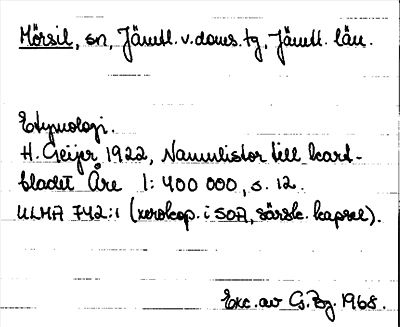 Mörsil, sn, Jämtl. v. doms. tg, Jämtl. län.
Etymologi.
H. Geijer, 1922, Namnlistor till kart-
bladet Åre 1: 400 000, s. 12.
ULMA 742:1 (xerokop. i SOA, särsk. kapsel).
Exc. av G. Bg. 1968.